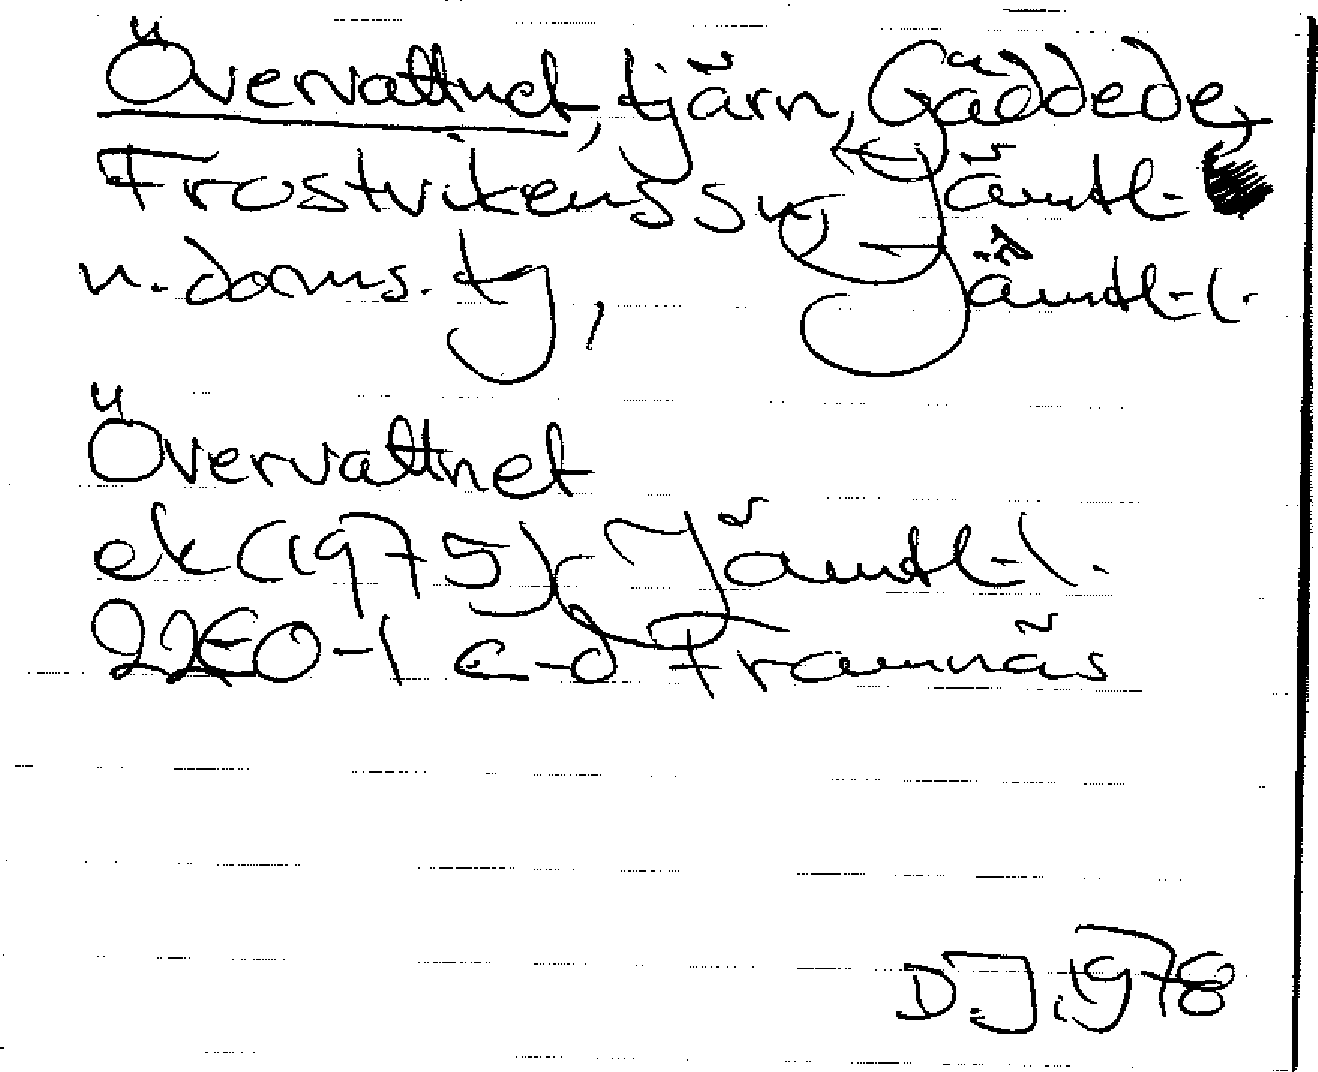 Övervattnet, tjärn, Gäddede,
Frostvikens sn, Jämtl.
n. doms. tj, Jämtl.l.
Övervattnet
ek (1975), Jämtl.l.
22E0-1 c-d Framnäs
D.J. 1978